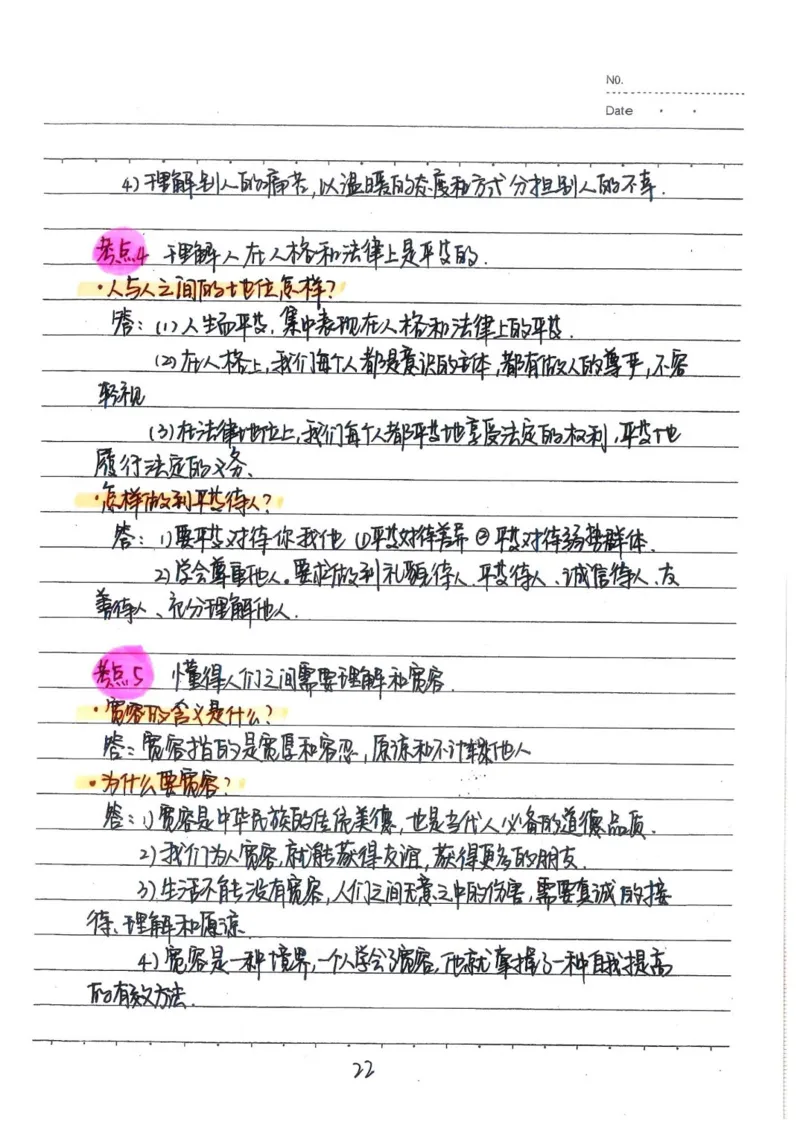 NO.
Date
4)理解别人的痛苦,以温暖的态度和方式分担别人的不幸.
考点4 理解人在人格和法律上是平等的.
·人与人之间的地位怎样?
答:(1)人生而平等,集中表现在人格和法律上的平等.
(2)在人格上,我们每个人都是意识的主体,都有做人的尊严,不容
轻视
(3)在法律地位上,我们每个人都平等地享受法定的权利,平等地
履行法定的义务.
·怎样做到平等待人?
答:1)要平等对待你我他 ①平等对待差异 ②平等对待弱势群体.
2)学会尊重他人。要求做到礼貌待人、平等待人、诚信待人、友
善待人、充分理解他人.
考点5 懂得人们之间需要理解和宽容.
·宽容的含义是什么?
答:宽容指的是宽厚和容忍,原谅和不计较他人
·为什么要宽容?
答:1)宽容是中华民族的传统美德,也是当代人必备的道德品质.
2)我们为人宽容,就能获得友谊,获得更多的朋友.
3)生活不能没有宽容,人们之间无意之中的伤害,需要真诚的接
待、理解和原谅.
4)宽容是一种境界,一个人学会了宽容,他就掌握了一种自我提高
的有效方法.
22